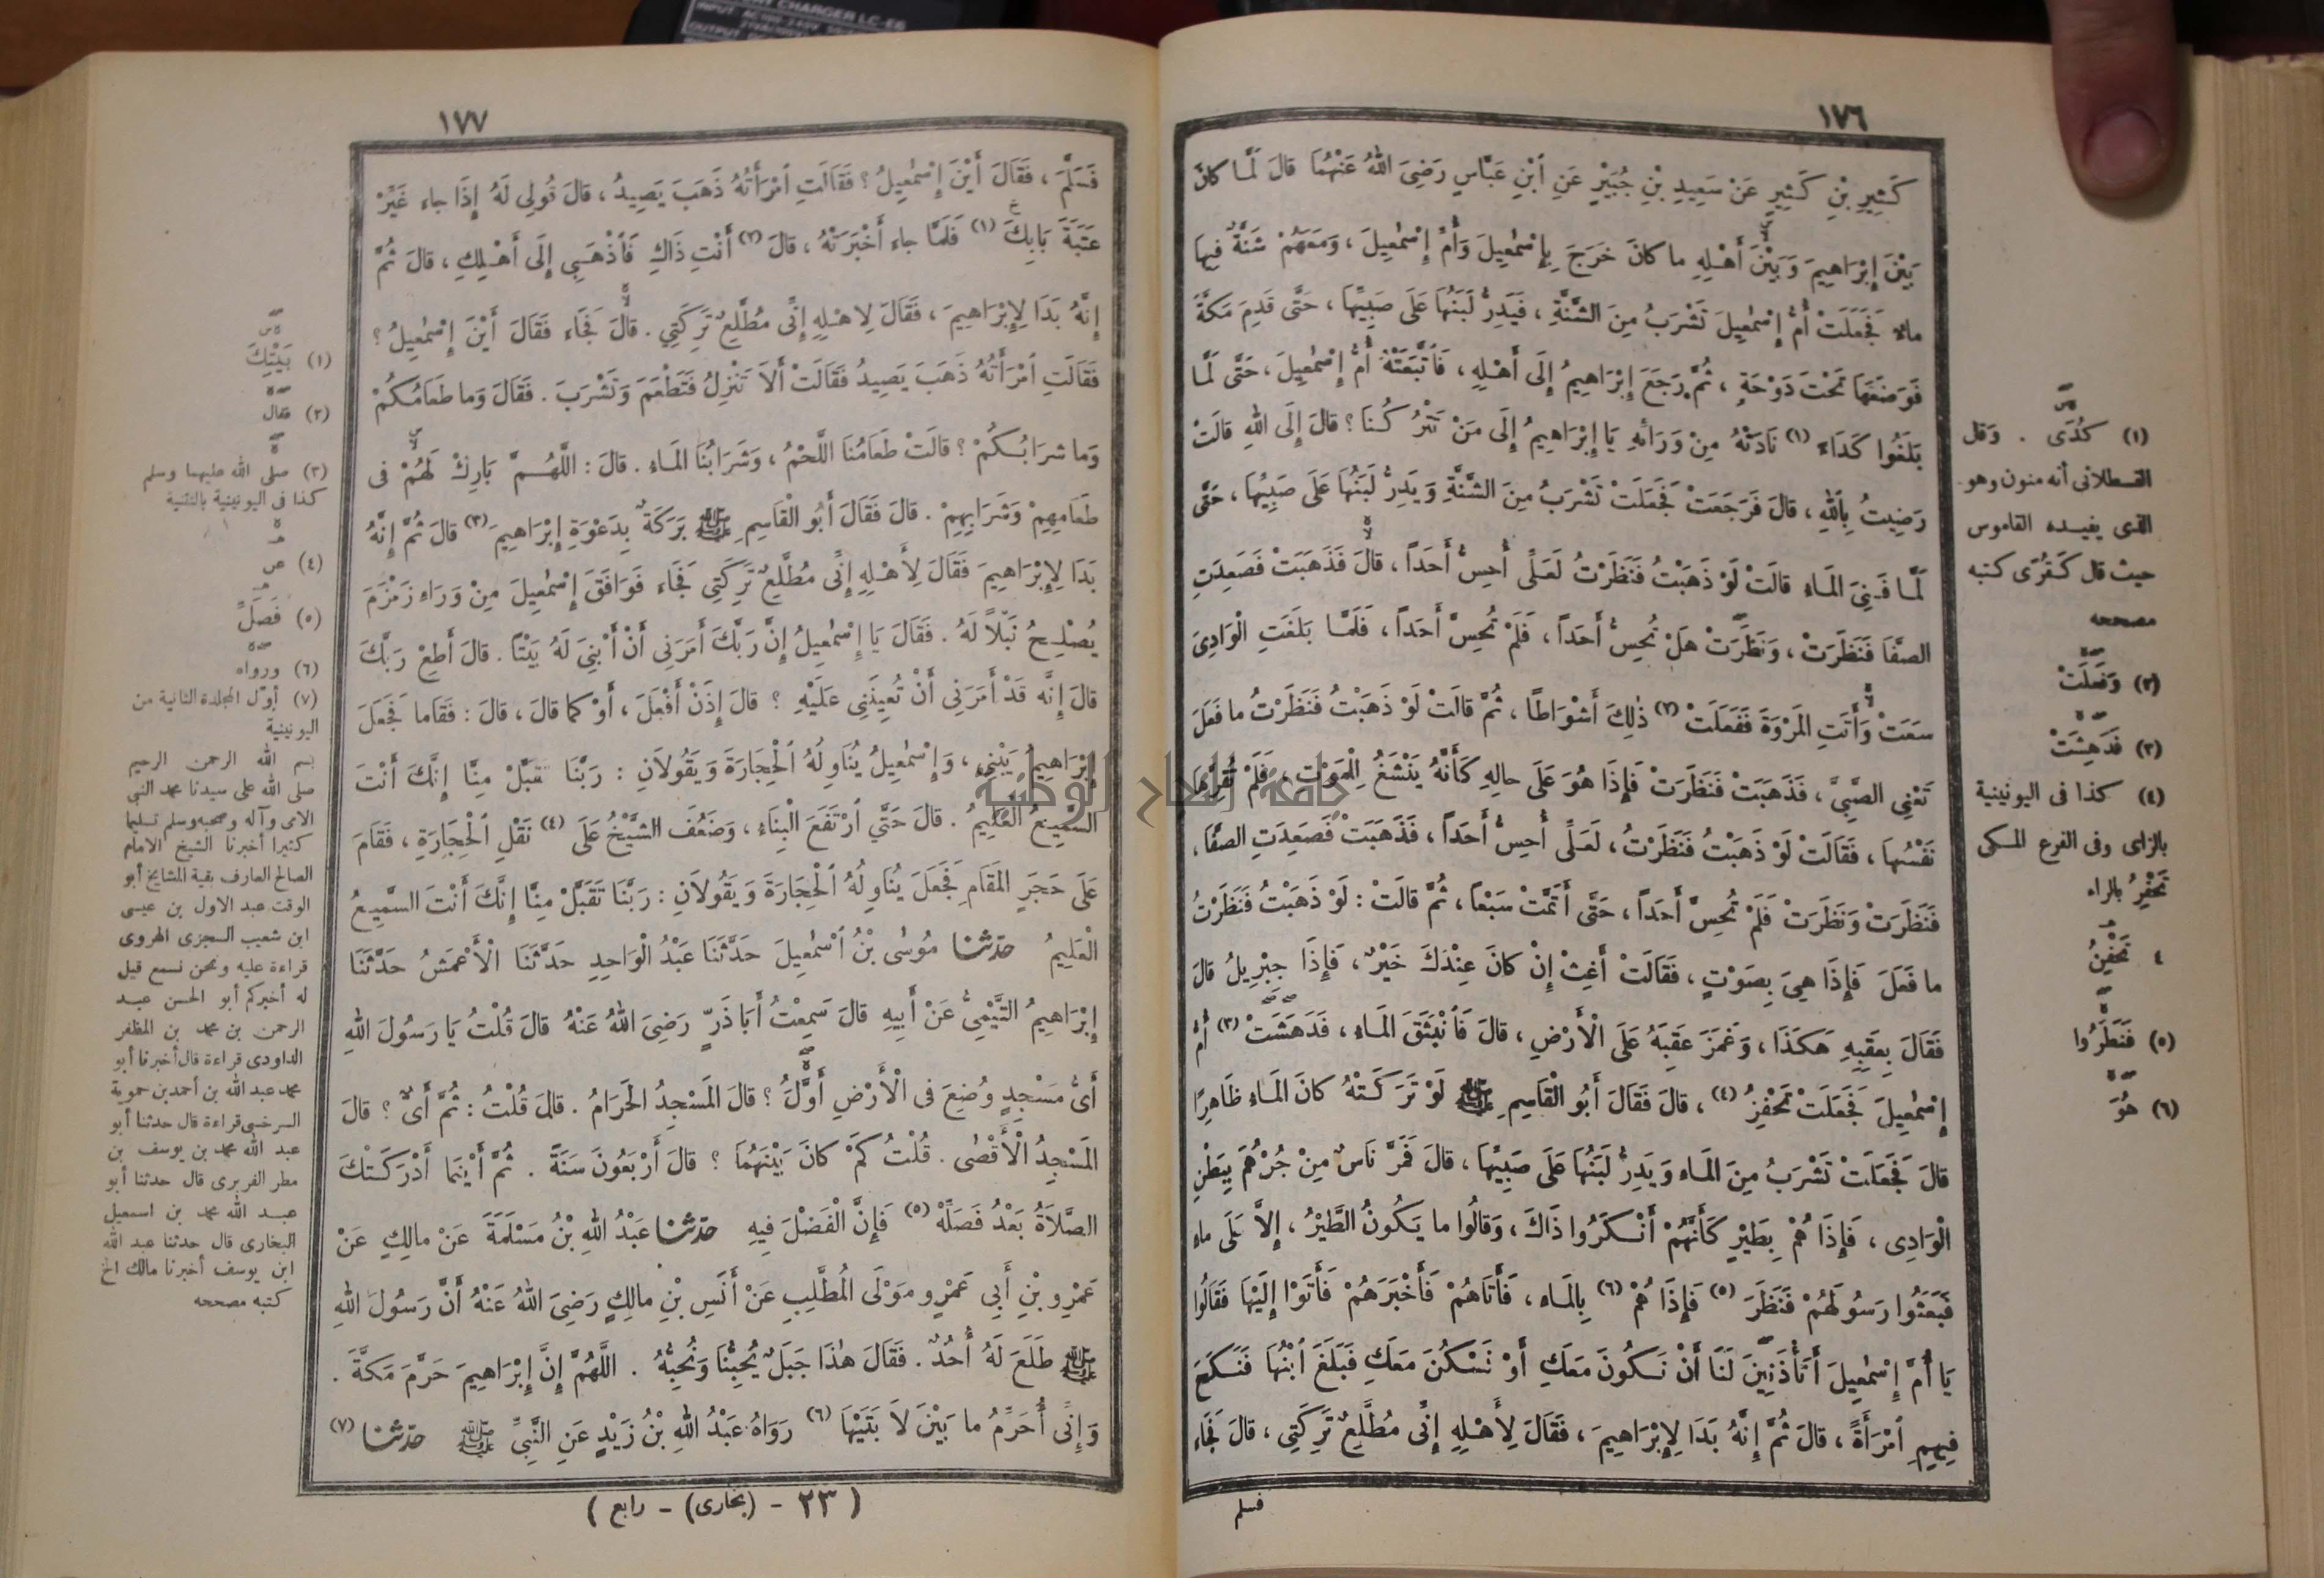 ١٧٦
كَثِيرِ بْنِ كَثِيرٍ عَنْ سَعِيدِ بْنِ جُبَيْرٍ عَنِ ٱبْنِ عَبَّاسٍ رَضِيَ اللهُ عَنْهُمَا قالَ لَمَّا كانَ
بَيْنَ إِبْرَاهِيمَ وَبَيْنَ أَهْلِهِ ما كانَ خَرَجَ بِإِسْمٰعِيلَ وَأُمِّ إِسْمٰعِيلَ ، وَمَعَهُمْ شَنَّةٌ فِيهَا
مالا فَجَعَلَتْ أُمُّ إِسْمٰعِيلَ تَشْرَبُ مِنَ الشَّنَّةِ ، فَيَدِرُّ لَبَنُهَا عَلَى صَبِيِّهَا ، حَتَّى قَدِمَ مَكَّةَ
فَوَضَعَهَا تَحْتَ دَوْحَةٍ ، ثُمَّ رَجَعَ إِبْرَاهِيمُ إِلَى أَهْلِهِ ، فَٱتَّبَعَتْهُ أُمُّ إِسْمٰعِيلَ ، حَتَّى لَمَّا
بَلَغُوا كَدَاءً (١) نَادَتْهُ مِنْ وَرَائِهِ يَا إِبْرَاهِيمُ إِلَى مَنْ تَتْرُكُنَا ؟ قالَ إِلَى اللهِ قالَتْ
رَضِيتُ بِاللهِ ، قالَ فَرَجَعَتْ فَجَعَلَتْ تَشْرَبُ مِنَ الشَّنَّةِ وَيَدِرُّ لَبَنُهَا عَلَى صَبِيِّهَا ، حَتَّى
لَمَّا فَنِيَ المَاءُ قالَتْ لَوْ ذَهَبْتُ فَنَظَرْتُ لَعَلِّى أُحِسُّ أَحَداً ، قالَ فَذَهَبَتْ فَصَعِدَتِ
الصَّفَا فَنَظَرَتْ ، وَنَظَرَتْ هَلْ تُحِسُّ أَحَداً ، فَلَمْ تُحِسَّ أَحَداً ، فَلَمَّا بَلَغَتِ الْوَادِيَ
سَعَتْ وَأَتَتِ المَرْوَةَ فَفَعَلَتْ (٢) ذٰلِكَ أَشْوَاطًا ، ثُمَّ قالَتْ لَوْ ذَهَبْتُ فَنَظَرْتُ ما فَعَلَ
تَعْنِى الصَّبِيَّ ، فَذَهَبَتْ فَنَظَرَتْ فَإِذَا هُوَ عَلَى حالِهِ كَأَنَّهُ يَنْشَغُ لِلْمَوْتِ ، فَلَمْ تُقِرَّهَا
نَفْسُهَا ، فَقَالَتْ لَوْ ذَهَبْتُ فَنَظَرْتُ ، لَعَلِّى أُحِسُّ أَحَداً ، فَذَهَبَتْ فَصَعِدَتِ الصَّفَا ،
فَنَظَرَتْ وَنَظَرَتْ فَلَمْ تُحِسَّ أَحَداً ، حَتَّى أَتَمَّتْ سَبْعاً ، ثُمَّ قالَتْ : لَوْ ذَهَبْتُ فَنَظَرْتُ
ما فَعَلَ فَإِذَا هِيَ بِصَوْتٍ ، فَقَالَتْ أَغِثْ إِنْ كانَ عِنْدَكَ خَيْرٌ ، فَإِذَا جِبْرِيلُ قالَ
فَقَالَ بِعَقِبِهِ هَكَذَا ، وَغَمَزَ عَقِبَهُ عَلَى الْأَرْضِ ، قالَ فَٱنْبَثَقَ المَاءُ ، فَدَهَشَتْ (٣) أُمُّ
إِسْمٰعِيلَ فَجَعَلَتْ تَحْفِزُ (٤) ، قالَ فَقَالَ أَبُو الْقَاسِمِ ﷺ لَوْ تَرَكَتْهُ كانَ المَاءُ ظَاهِرًا
قالَ فَجَعَلَتْ تَشْرَبُ مِنَ المَاءِ وَيَدِرُّ لَبَنُهَا عَلَى صَبِيِّهَا ، قالَ فَمَرَّ نَاسٌ مِنْ جُرْهُمَ بِبَطْنِ
الْوَادِى ، فَإِذَا هُمْ بِطَيْرٍ كَأَنَّهُمْ أَنْكَرُوا ذَاكَ ، وَقالُوا ما يَكُونُ الطَّيْرُ ، إِلاَّ عَلَى ماءٍ
فَبَعَثُوا رَسُولَهُمْ فَنَظَرَ (٥) فَإِذَا هُمْ (٦) بِالمَاءِ ، فَأَتَاهُمْ فَأَخْبَرَهُمْ فَأَتَوْا إِلَيْهَا فَقَالُوا
يَا أُمَّ إِسْمٰعِيلَ أَتَأْذَنِينَ لَنَا أَنْ نَكُونَ مَعَكِ أَوْ نَسْكُنَ مَعَكِ فَبَلَغَ ٱبْنُهَا فَنَكَحَ
فِيهِمِ ٱمْرَأَةً ، قالَ ثُمَّ إِنَّهُ بَدَا لِإِبْرَاهِيمَ ، فَقَالَ لِأَهْلِهِ إِنِّى مُطَّلِعٌ تَرِكَتِى ، قالَ فَجَاءَ
فسلم
(١) كُدًى . وقال
القسطلانى أنه منون وهو
الذى يفيده القاموس
حيث قال كقُرًى كتبه
مصححه
(٢) وَفَعَلَتْ
(٣) فَدَهِشَتْ
(٤) كذا فى اليونينية
بالزاى وفى الفرع المكى
تَحْفِرُ بالراء
٤ تَحْفِنُ
(٥) فَنَظَرُوا
(٦) هُوَ
١٧٧
فَسَلَّمَ ، فَقَالَ أَيْنَ إِسْمٰعِيلُ ؟ فَقَالَتِ ٱمْرَأَتُهُ ذَهَبَ يَصِيدُ ، قالَ قُولِى لَهُ إِذَا جاءَ غَيِّرْ
عَتَبَةَ بَابِكَ (١) فَلَمَّا جاءَ أَخْبَرَتْهُ ، قالَ (٢) أَنْتِ ذَاكِ فَٱذْهَبِى إِلَى أَهْلِكِ ، قالَ ثُمَّ
إِنَّهُ بَدَا لِإِبْرَاهِيمَ ، فَقَالَ لِاهْلِهِ إِنِّى مُطَّلِعٌ تَرِكَتِى . قالَ فَجَاءَ فَقَالَ أَيْنَ إِسْمٰعِيلُ ؟
فَقَالَتِ ٱمْرَأَتُهُ ذَهَبَ يَصِيدُ فَقَالَتْ أَلاَ تَنْزِلُ فَتَطْعَمَ وَتَشْرَبَ . فَقَالَ وَما طَعَامُكُمْ
وَما شرَابُكُمْ ؟ قالَتْ طَعَامُنَا اللَّحْمُ ، وَشَرَابُنَا المَاءُ . قالَ : اللَّهُمَّ بَارِكْ لَهُمْ فى
طَعَامِهِمْ وَشَرَابِهِمْ . قالَ فَقَالَ أَبُو الْقَاسِمِ ﷺ بَرَكَةٌ بِدَعْوَةِ إِبْرَاهِيمَ (٣) قالَ ثُمَّ إِنَّهُ
بَدَا لِإِبْرَاهِيمَ فَقَالَ لِأَهْلِهِ إِنِّى مُطَّلِعٌ تَرِكَتِى فَجَاءَ فَوَافَقَ إِسْمٰعِيلَ مِنْ وَرَاءِ زَمْزَمَ
يُصْلِحُ نَبْلاً لَهُ . فَقَالَ يَا إِسْمٰعِيلُ إِنَّ رَبَّكَ أَمَرَنِى أَنْ أَبْنِىَ لَهُ بَيْتًا . قالَ أَطِعْ رَبَّكَ
قالَ إِنَّه قَدْ أَمَرَنِى أَنْ تُعِينَنِى عَلَيْهِ ؟ قالَ إِذَنْ أَفْعَلَ ، أَوْ كما قالَ ، قالَ : فَقَاما فَجَعَلَ
إِبْرَاهِيمُ يَبْنِى ، وَإِسْمٰعِيلُ يُنَاوِلُهُ ٱلْحِجَارَةَ وَيَقُولاَنِ : رَبَّنَا تَقَبَّلْ مِنَّا إِنَّكَ أَنْتَ
السَّمِيعُ الْعَلِيمُ . قالَ حَتَّى ٱرْتَفَعَ الْبِنَاءُ ، وَضَعُفَ الشَّيْخُ عَلَى (٤) نَقْلِ ٱلْحِجَارَةِ ، فَقَامَ
عَلَى حَجَرِ المَقَامِ فَجَعَلَ يُنَاوِلُهُ ٱلْحِجَارَةَ وَيَقُولاَنِ : رَبَّنَا تَقَبَّلْ مِنَّا إِنَّكَ أَنْتَ السَّمِيعُ
الْعَلِيمُ حدّثنا مُوسٰى بْنُ ٱسْمٰعِيلَ حَدَّثَنَا عَبْدُ الْوَاحِدِ حَدَّثَنَا الْأَعْمَشُ حَدَّثَنَا
إِبْرَاهِيمُ التَّيْمِىُّ عَنْ أَبِيهِ قالَ سَمِعْتُ أَبَا ذَرٍّ رَضِيَ اللهُ عَنْهُ قالَ قُلْتُ يَا رَسُولَ اللهِ
أَىُّ مَسْجِدٍ وُضِعَ فى الْأَرْضِ أَوَّلُ ؟ قالَ المَسْجِدُ الحَرَامُ . قالَ قُلْتُ : ثُمَّ أَىٌّ ؟ قالَ
المَسْجِدُ الْأَقْصٰى . قُلْتُ كَمْ كانَ بَيْنَهُمَا ؟ قالَ أَرْبَعُونَ سَنَةً . ثُمَّ أَيْنَمَا أَدْرَكَتْكَ
الصَّلاَةُ بَعْدُ فَصَلِّهْ (٥) فَإِنَّ الْفَضْلَ فِيهِ حدّثنا عَبْدُ اللهِ بْنُ مَسْلَمَةَ عَنْ مالِكٍ عَنْ
عَمْرِو بْنِ أَبِى عَمْرٍو مَوْلَى المُطَّلِبِ عَنْ أَنَسِ بْنِ مالِكٍ رَضِيَ اللهُ عَنْهُ أَنَّ رَسُولَ اللهِ
ﷺ طَلَعَ لَهُ أُحُدٌ . فَقَالَ هٰذَا جَبَلٌ يُحِبُّنَا وَنُحِبُّهُ . اللَّهُمَّ إِنَّ إِبْرَاهِيمَ حَرَّمَ مَكَّةَ .
وَإِنِّى أُحَرِّمُ ما بَيْنَ لاَ بَتَيْهَا (٦) رَوَاهُ عَبْدُ اللهِ بْنُ زَيْدٍ عَنِ النَّبِىِّ ﷺ حدّثنا (٧)
( ٢٣ - (بخارى) - رابع )
(١) بَيْتِكَ
(٢) فقال
(٣) صلى الله عليهما وسلم
كذا فى اليونينية بالتثنية
(٤) عن
(٥) فَصَلِّ
(٦) ورواه
(٧) أول المجلدة الثانية من
اليونينية
بسم الله الرحمن الرحيم
صلى الله على سيدنا محمد النبي
الامى وآله وصحبه وسلم تسليما
كثيرا أخبرنا الشيخ الامام
الصالح العارف بقية المشايخ أبو
الوقت عبد الاول بن عيسى
ابن شعيب السجزى الهروى
قراءة عليه ونحن نسمع قيل
له أخبركم أبو الحسن عبد
الرحمن بن محمد بن المظفر
الداودى قراءة قال أخبرنا أبو
محمد عبد الله بن أحمد بن حموية
السرخسى قراءة قال حدثنا أبو
عبد الله محمد بن يوسف بن
مطر الفربرى قال حدثنا أبو
عبد الله محمد بن اسمعيل
البخارى قال حدثنا عبد الله
ابن يوسف أخبرنا مالك الخ
كتبه مصححه
جامعة النجاح الوطنية